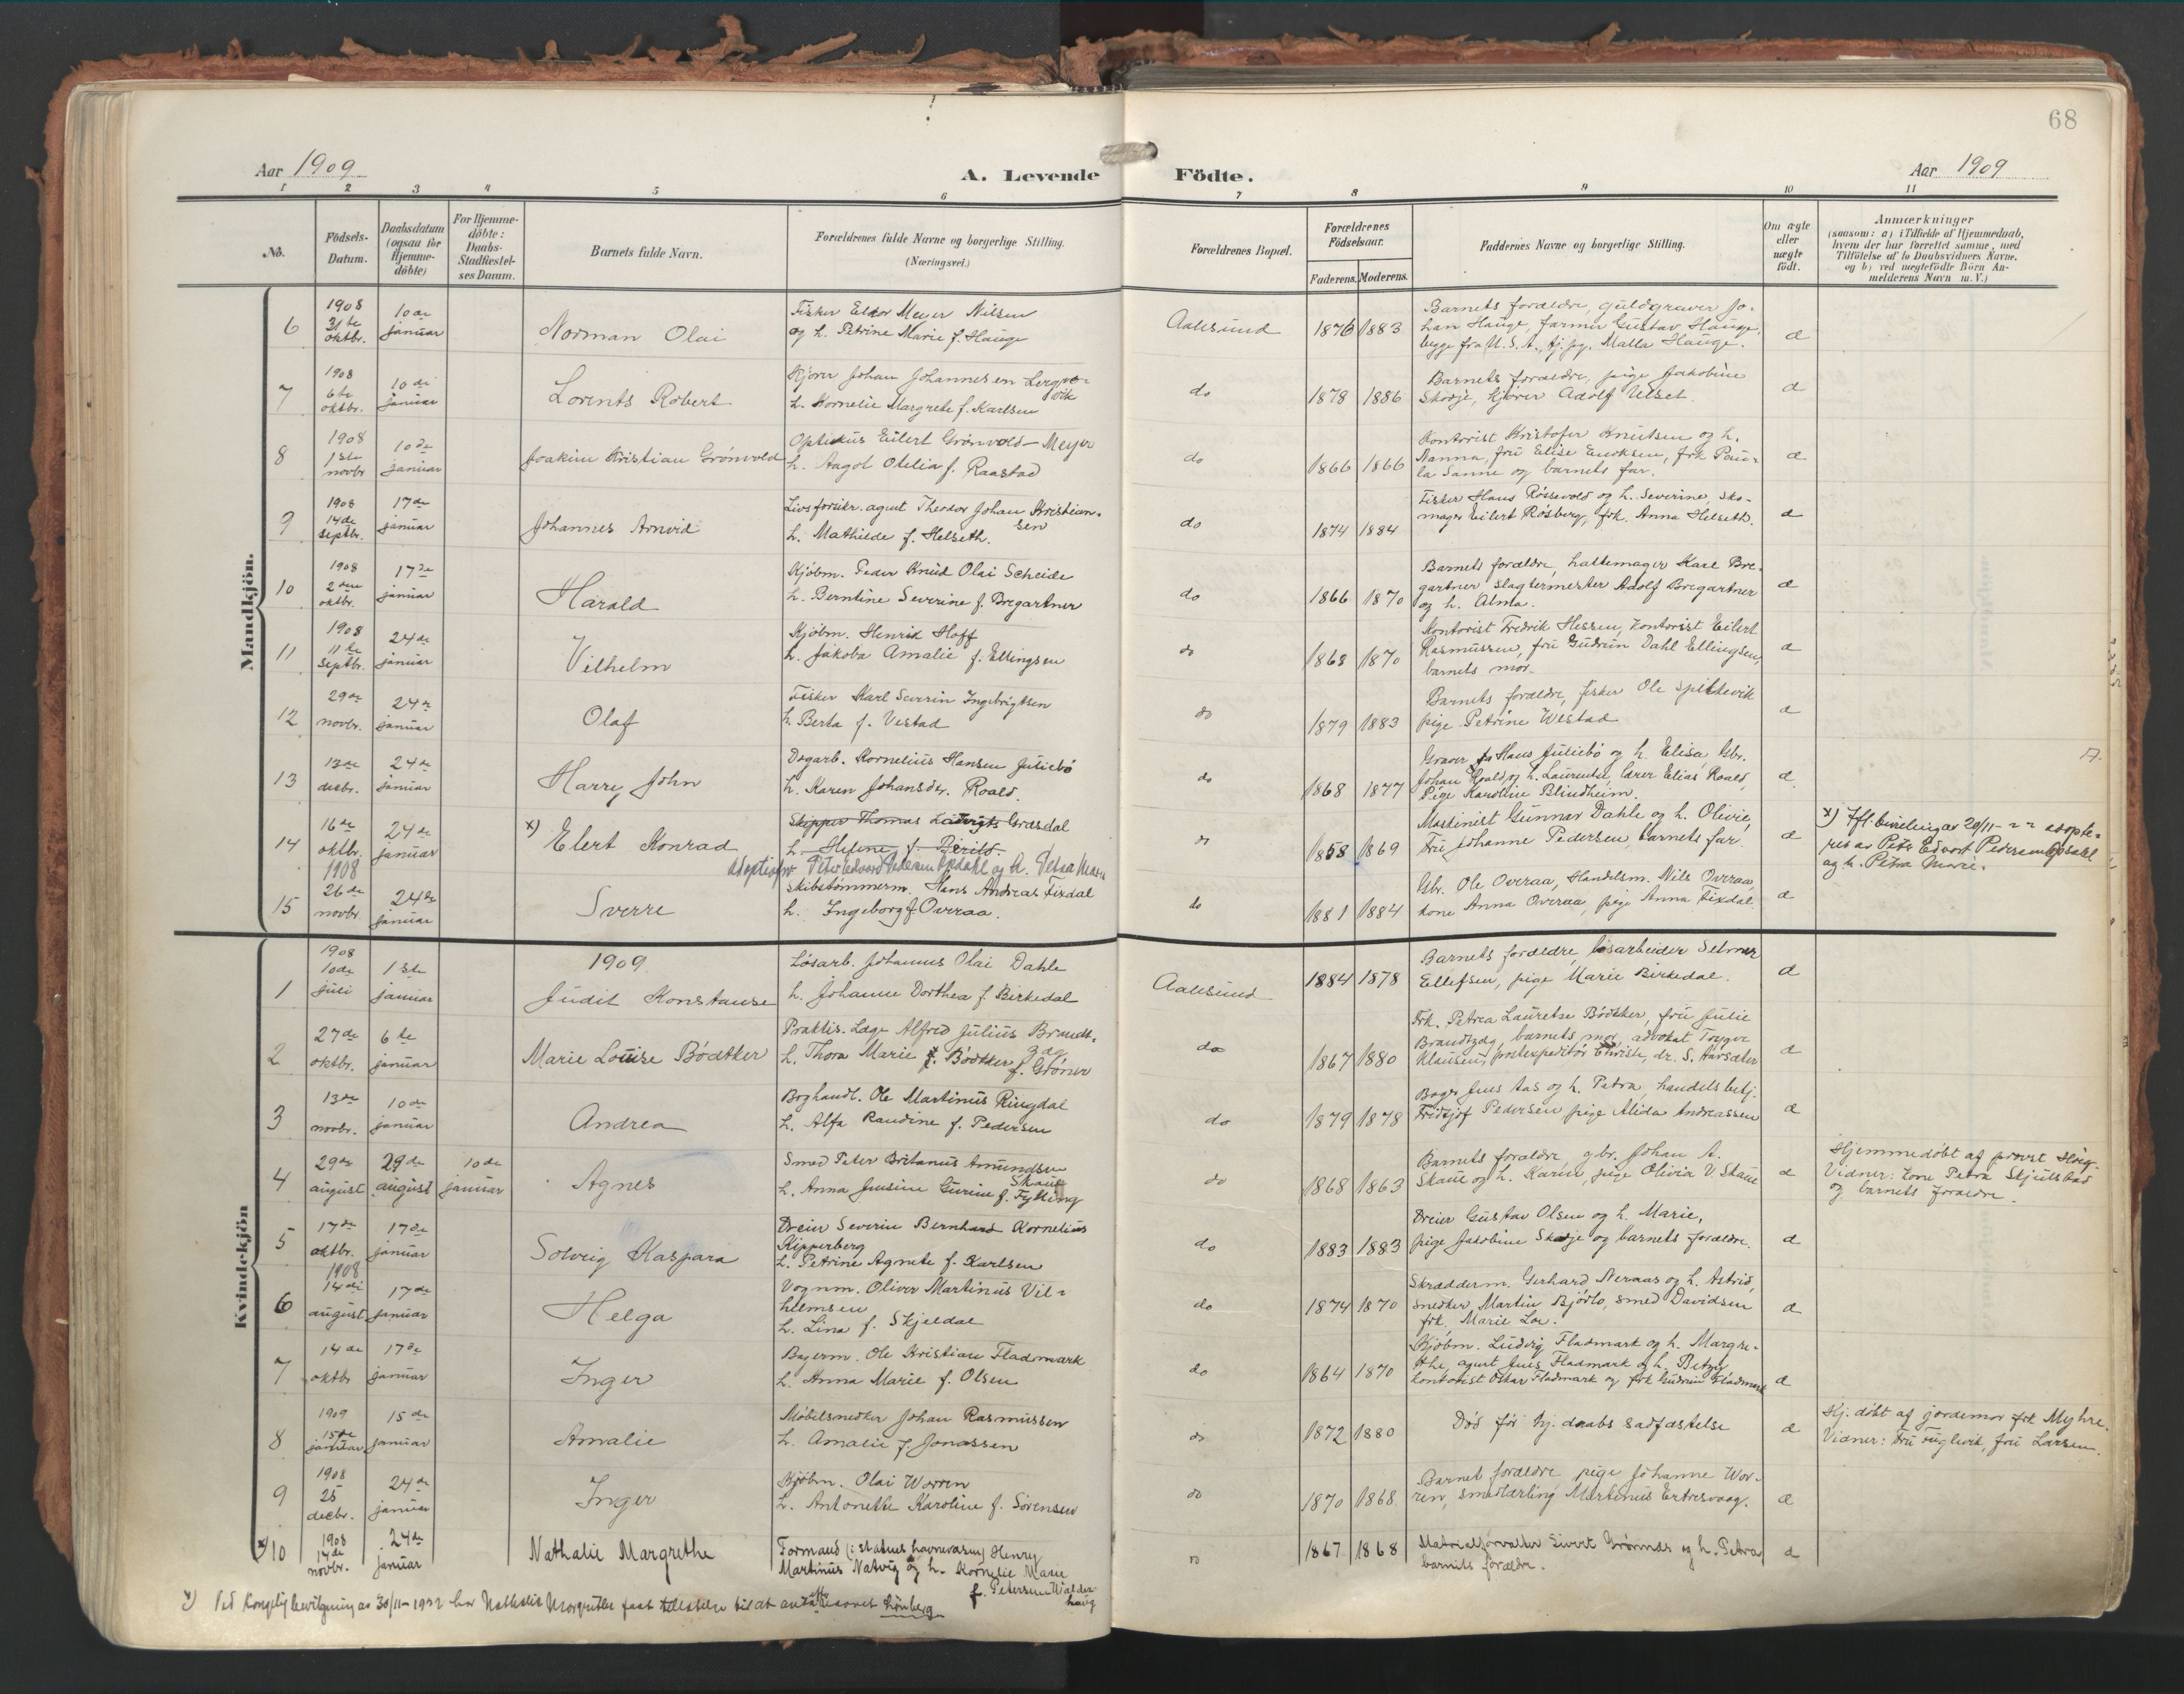 68
Aar 1909
A. Levende Födte.
Aar 1909
1 2 3 4 5 6 7 8 9 10 11
No.
Födsels-
Datum.
Daabsdatum
(ogsaa for
Hjemme-
döbte)
For Hjemme-
döbte:
Daabs-
Stadfæstel-
ses Datum.
Barnets fulde Navn.
Forældrenes fulde Navne og borgerlige Stilling.
(Næringsvei.)
Forældrenes Bopæl.
Forældrenes
Födselsaar.
Faderens. Moderens.
Faddernes Navne og borgerlige Stilling.
Om ægte
eller
uægte
födt.
Anmærkninger
(saasom: a) i Tilfælde af Hjemmedaab,
hvem der har forrettet samme, med
Tilföielse af to Daabsvidners Navne,
og b) ved uægtefödte Börn An-
melderens Navn m. V.)
Mandkjön.
6
1908
31te
oktbr.
10de
januar
Norman Olai
Fisker Eldor Meyer Nilsen
og h. Petrine Marie f. Hauge
Aalesund
1876 1883
Barnets forældre, guldgraver Jo-
han Hauge, farmer Gustav Hauge,
begge fra U.S.A., tj.pg. Malla Hauge.
æ
7
1908
6te
oktbr.
10de
januar
Lorents Robert
Kjører Johan Johannesen Lergro-
vik
h. Kornelie Margrete f. Karlsen
do
1878 1886
Barnets forældre, pige Jakobine
Skodje, kjører Adolf Ulset.
æ
8
1908
1ste
novbr
10de
januar
Joakim Kristian Grönvold
Optikus Eilert Grönvold-Meyer
h. Aagot Otilia f. Raastad
do
1866 1866
Kontorist Kristofer Knutsen og h.
Nanna, fru Elise Eriksen, frk Pau-
la Sanne og barnets far.
æ
9
1908
14de
septbr.
17de
januar
Johannes Arnvid
Livsforsikr. agent Theodor Johan Kristian-
sen
h. Mathilde f. Helseth.
do
1874 1884
Fisker Hans Rössevold og h. Severine, sko-
mager Eilert Rösberg, frk. Anna Helseth.
æ
10
1908
2den
oktbr.
17de
januar
Harald
Kjöbm. Peder Knud Olai Scheide
h. Berntine Severine f. Bregartner
do
1866 1870
Barnets forældre, hattemager Karl Bre-
gartner slagtermester Adolf Bregartner
og h. Alma.
æ
11
1908
11te
septbr.
24de
januar
Vilhelm
Kjöbm. Henrik Hoff
h. Jakoba Amalie f. Ellingsen
do
1868 1870
Kontorist Fredrik Hessen, kontorist Eilert
Rasmussen, fru Gudrun Dahl Ellingsen,
barnets mor.
æ
12
29de
novbr.
24de
januar
Olaf
Fisker Karl Severin Ingebrigtsen
h. Berta f. Vestad
do
1879 1883
Barnets forældre, fisker Ole Spillevik
pige Petrine Westad
æ
13
13de
decbr.
24de
januar
Harry John
Dagarb. Kornelius Hansen Juliebö
h. Karen Johansdr. Roald.
do
1868 1877
Graver Hans Juliebö og h. Elisa, Gbr.
Johan Roald og h. Laurentse, lærer Elias Roald,
Pige Karoline Blindheim.
æ
14
16de
oktbr.
1908
24de
januar
x) Elert Konrad
Skipper Thomas Ludvigts Græsdal
h. Helene f. Berild.
Adoptivfor. Peter Edvard Pedersen Opdahl og h. Petra Marie
do
1858 1869
Maskinist Gunnar Dahle og h. Olivie,
Fru Johanne Pedersen, barnets far.
æ
x) Ifl. bevilling av 20/11-22 adopte-
res av Peter Edvart Pedersen Opdahl
og h. Petra Marie.
15
26de
novbr.
24de
januar
Sverre
Skibstömmerm. Hans Andreas Fixdal
h. Ingeborg f. Overaa.
do
1881 1884
Gbr. Ole Overaa, Handelsm. Nils Overaa,
kone Anna Overaa, pige Anna Fixdal.
æ
Kvindekjön
1909
1
1908
10de
juli
1ste
januar
Judit Konstanse
Lösarb. Johannes Olai Dahle
h. Johanne Dorthea f. Birkedal
Aalesund
1884 1878
Barnets forældre, lösarbeider Selmer
Ellefsen, pige Marie Birkedal.
æ
2
27de
oktbr.
6te
januar
Marie Louise Bödtker
Praktis. Læge Alfred Julius Brandt-
zæg
h. Thora Marie f. Bödtker f. Gröner
do
1867 1880
Frk. Petrea Lauretse Bödtker, fru Julie
Brandtzæg, barnets mor, advokat Trygve
Klausen, postexpeditör Christie, dr. S. Aarsæter
æ
3
13de
novbr.
10de
januar
Andrea
Boghandl. Ole Martinus Ringdal
h. Alfa Raudine f. Pedersen
do
1879 1878
Bager Jens Aas og h. Petra, handelsbetj.
Fridtjof Pedersen pige Alida Andreassen
æ
4
29de
august
29de
august
10de
januar
Agnes
Smed Peter Britanus Amundsen
Skaue
h. Anna Jensine Gurine f. Fylling
do
1868 1863
Barnets forældre, gbr. Johan A.
Skaue og h. Karen, pige Olivia V. Skaue
æ
Hjemmedöbt af provst Höeg.
Vidner: kone Petra Skjulstad
og barnets forældre.
5
17de
oktbr.
1908
17de
januar
Solveig Kaspara
Dreier Severin Bernhard Kornelius
Kipperberg
h. Petrine Agnete f. Karlsen
do
1883 1883
Dreier Gustav Olsen og h. Marie,
pige Jakobine Skodje og barnets forældre.
æ
6
14de
august
17de
januar
Helga
Vognm. Oliver Martinus Vil-
helmsen
h. Lina f. Skjeldal
do
1874 1870
Skrædderm. Gerhard Neraas og h. Astrid,
snedker Martin Bjørlo, smed Davidsen
frk. Marie Loe.
æ
7
14de
oktbr
17de
januar
Inger
Bagerm. Ole Kristian Fladmark
h. Anna Marie f. Olsen
do
1864 1870
Kjöbm. Ludvig Fladmark og h. Margre-
the, agent Jens Fladmark og h. Betzy
kontorist Oskar Fladmark og frk Gudrun Fladmark
æ
8
1909
15de
januar
15de
januar
Amalie
Möbelsnedker Johan Rasmussen
h. Amalie f. Jonassen
do
1872 1880
Död för hj. daabs sadfæstelse
æ
Hj. döbt af jordemor frk Myhre.
Vidner: fru Fuglevik, fru Larsen.
9
1908
25
decbr.
24de
januar
Inger
Kjöbm. Olai Worren
h. Antonette Karoline f. Sörensen
do
1870 1868
Barnet forældre, pige Johanne Wor-
ren, smedlærling Martinus Ertresvaag.
æ
x) 10
1908
14de
novbr.
24de
januar
Nathalie Margrethe
Formand (: statens havnevæsen) Henry
Martinus Natvig og h. Kornelie Marie
f. Petersen Walder-
haug
do
1867 1868
Matrialforvalter Sivert Grönnes og h. Petra
barnets forældre.
æ
x) Ved Kongelig bevilgning av 30/11-1922 har Nathalie Margrethe faat tilladelse til at anta navnet Lönberg